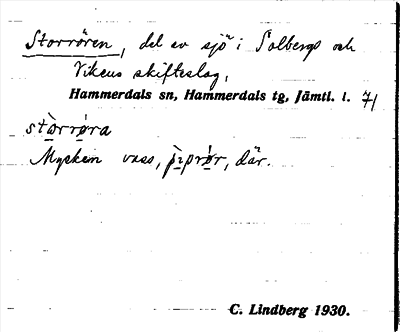 Storrören, del av sjö i Solbergs och
Vikens skifteslag,
Hammerdals sn, Hammerdals tg, Jämtl. l. 71
stòrrøra
Mycken vass, pìprǿr, där.
C. Lindberg 1930.